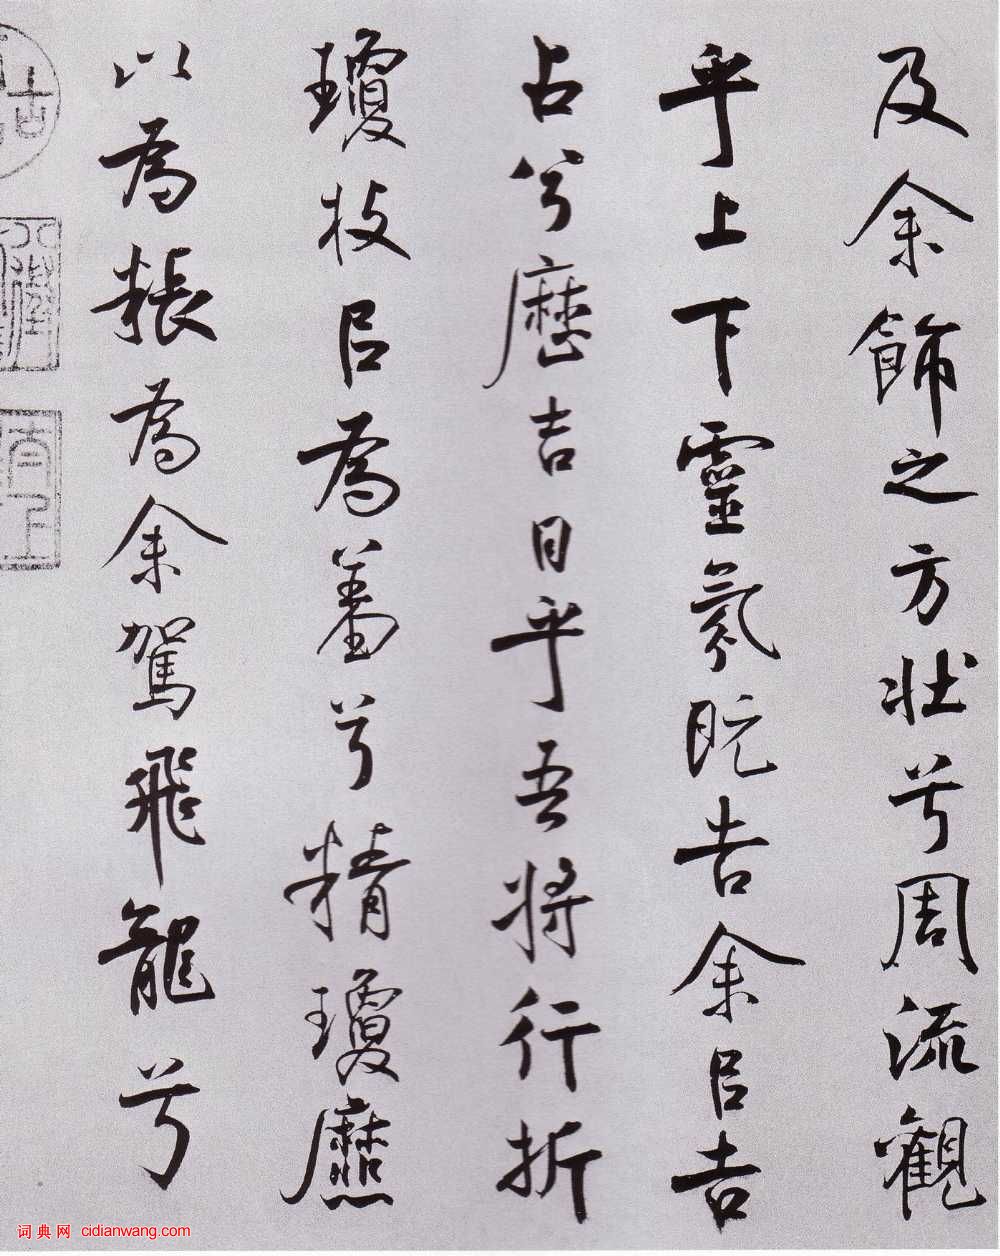 及余飾之方壯兮周流觀
乎上下靈氛既告余㠯吉
占兮歷吉日乎吾將行折
瓊枝㠯為羞兮精瓊爢
以為粻為余駕飛龍兮
词典网 cidianwang.com